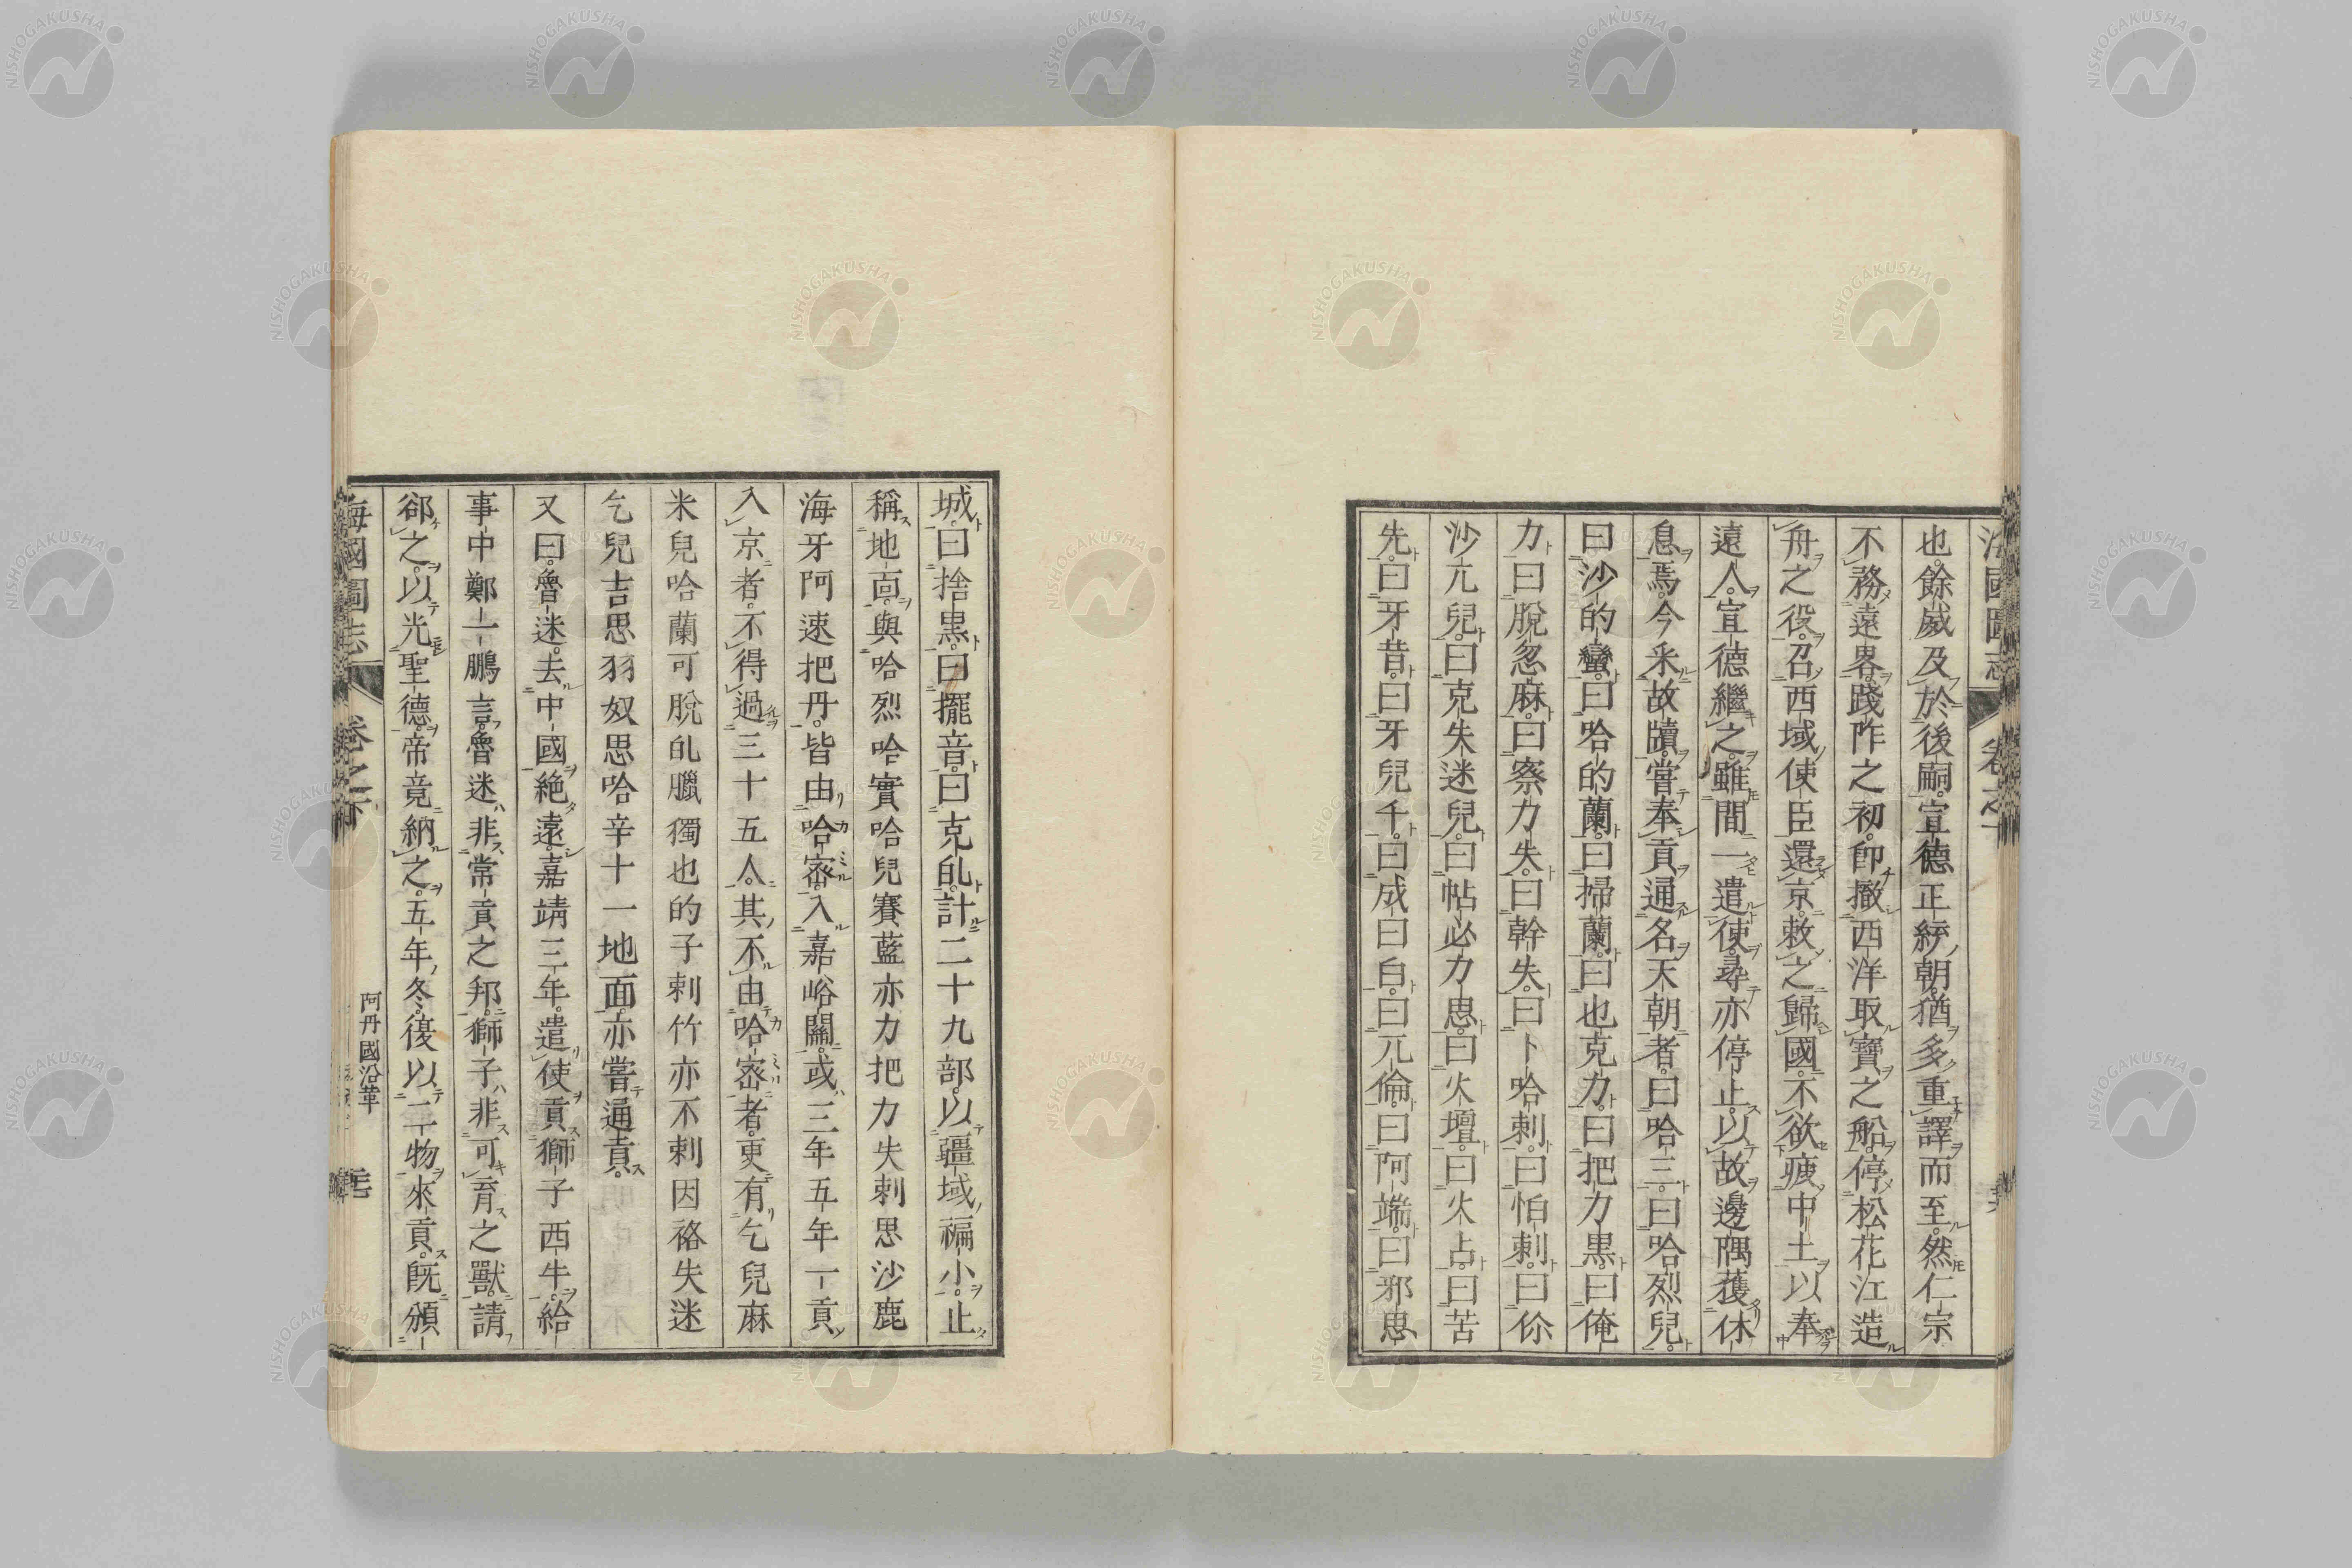 也餘威及於後嗣宣德正統朝猶多重譯而至然仁宗
不務遠畧踐阼之初卽撤西洋取寶之船停松花江造
舟之役召西域使臣還京敕之歸國不欲疲中土以奉
遠人宣德繼之雖間一遣使尋亦停止以故邊隅獲休
息焉今釆故牘嘗奉貢通名天朝者曰哈三曰哈烈兒
曰沙的蠻曰哈的蘭曰掃蘭曰也克力曰把力黑曰俺
力曰脫忽麻曰察力失曰幹失曰卜哈剌曰怕剌曰你
沙兀兒曰克失迷兒曰帖必力思曰火壇曰火占曰苦
先曰牙昔曰牙兒千曰戍曰白曰兀倫曰阿端曰邪思
城曰捨黑曰擺音曰克癿計二十九部以疆域褊小止
稱地面與哈烈哈實哈兒賽藍亦力把力失剌思沙鹿
海牙阿速把丹皆由哈宻入嘉峪關或三年五年一貢
入京者不得過三十五人其不由哈宻者更有乞兒麻
米兒哈蘭可脫癿臘獨也的子剌竹亦不剌因格失迷
乞兒吉思羽奴思哈辛十一地面亦嘗通貢
又曰魯迷去中國絶遠嘉靖三年遣使貢獅子西牛給
事中鄭一鵬言魯迷非常貢之邦獅子非可育之獸請
郤之以光聖德帝竟納之五年冬復以二物來貢旣頒
海國圖志
阿丹國沿革
NISHOGAKUSHA